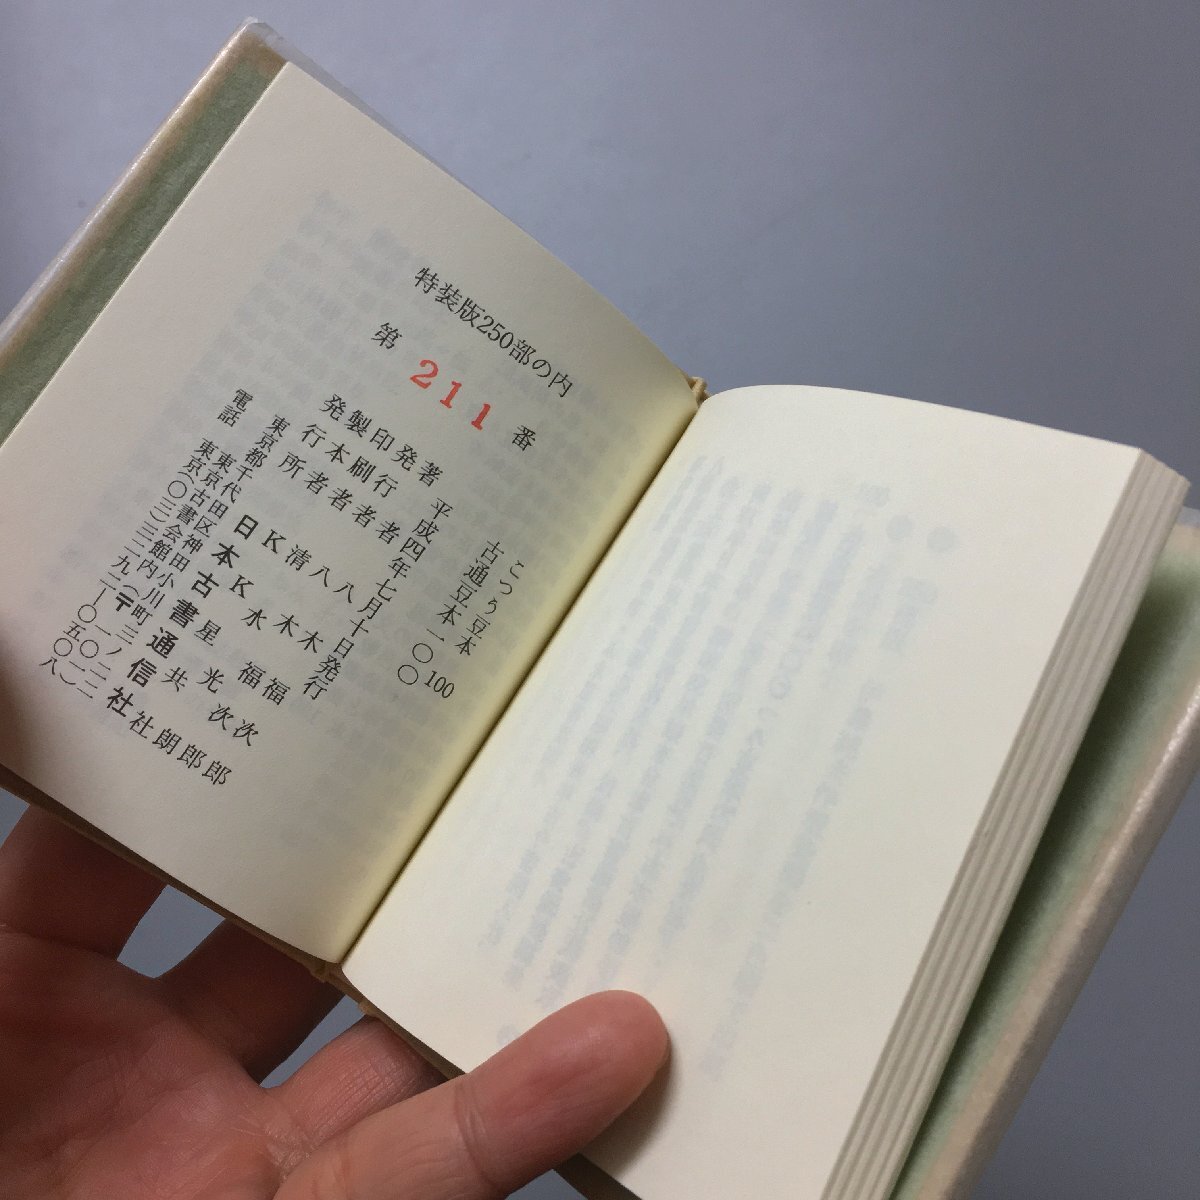 特装版250部の内
第 211 番
こつう豆本 100
古通豆本一〇〇
平成四年七月十日発行
著者 八木福次郎
発行者 八木福次郎
印刷者 清水光朗
製本者 KK 星共社
発行所 日本古書通信社
東京都千代田区神田小川町三ノ二二
東京古書会館内(〒一〇一)
電話 東京(〇三)三二九二―〇五〇八